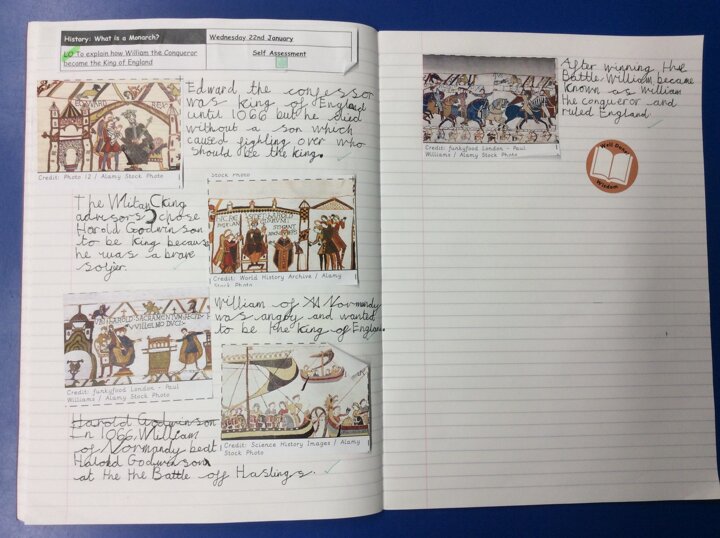 History: What is a Monarch?
Wednesday 22nd January
LO To explain how William the Conqueror
became the King of England
Self Assessment
EDWARD REX
Credit: Photo 12 / Alamy Stock Photo
Edward the confessor
was king of England
until 1066 but he died
without a son which
caused fighting over who
should be the king.
Stock Photo
The Mitan (king
advisors) chose
Harold Godwinson
to be king because
he was a brave
soljer.
Credit: World History Archive / Alamy
Stock Photo
William of Normandy
was angry and wanted
to be the king of England.
HAROLD SACRAMENTUM FECIT
VVILLELMO DUCI
Credit: funkyfood London - Paul
Williams / Alamy Stock Photo
Credit: Science History Images / Alamy
Stock Photo
Harold Godwinson
In 1066, William
of Normandy beat
Halold Godwinson
at the the Battle off Hastings.
Credit: funkyfood London - Paul
Williams / Alamy Stock Photo
After winning the
Battle William became
known as William
the conqueror and
ruled England.
Well Done!
Wisdom